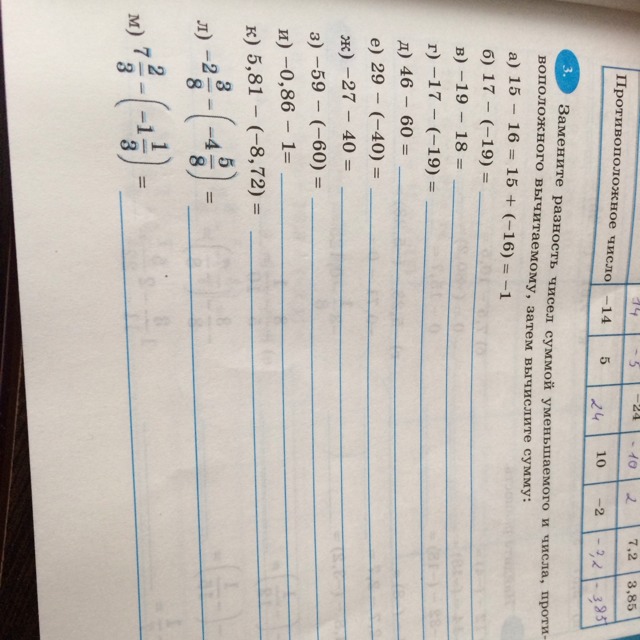 14 -5 -24 -10 2 7,2 3,85
Противоположное число -14 5 24 10 -2 -7,2 -3,85
3. Замените разность чисел суммой уменьшаемого и числа, проти
воположного вычитаемому, затем вычислите сумму:
а) 15 − 16 = 15 + (−16) = −1
б) 17 − (−19) =
в) −19 − 18 =
г) −17 − (−19) =
д) 46 − 60 =
е) 29 − (−40) =
ж) −27 − 40 =
з) −59 − (−60) =
и) −0,86 − 1 =
к) 5,81 − (−8,72) =
л) −2 3/8 − (−4 5/8) =
м) 7 2/3 − (−1 1/3) =